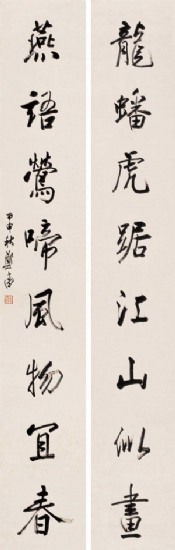 龍蟠虎踞江山似畫
燕語鶯啼風物宜春
甲申秋